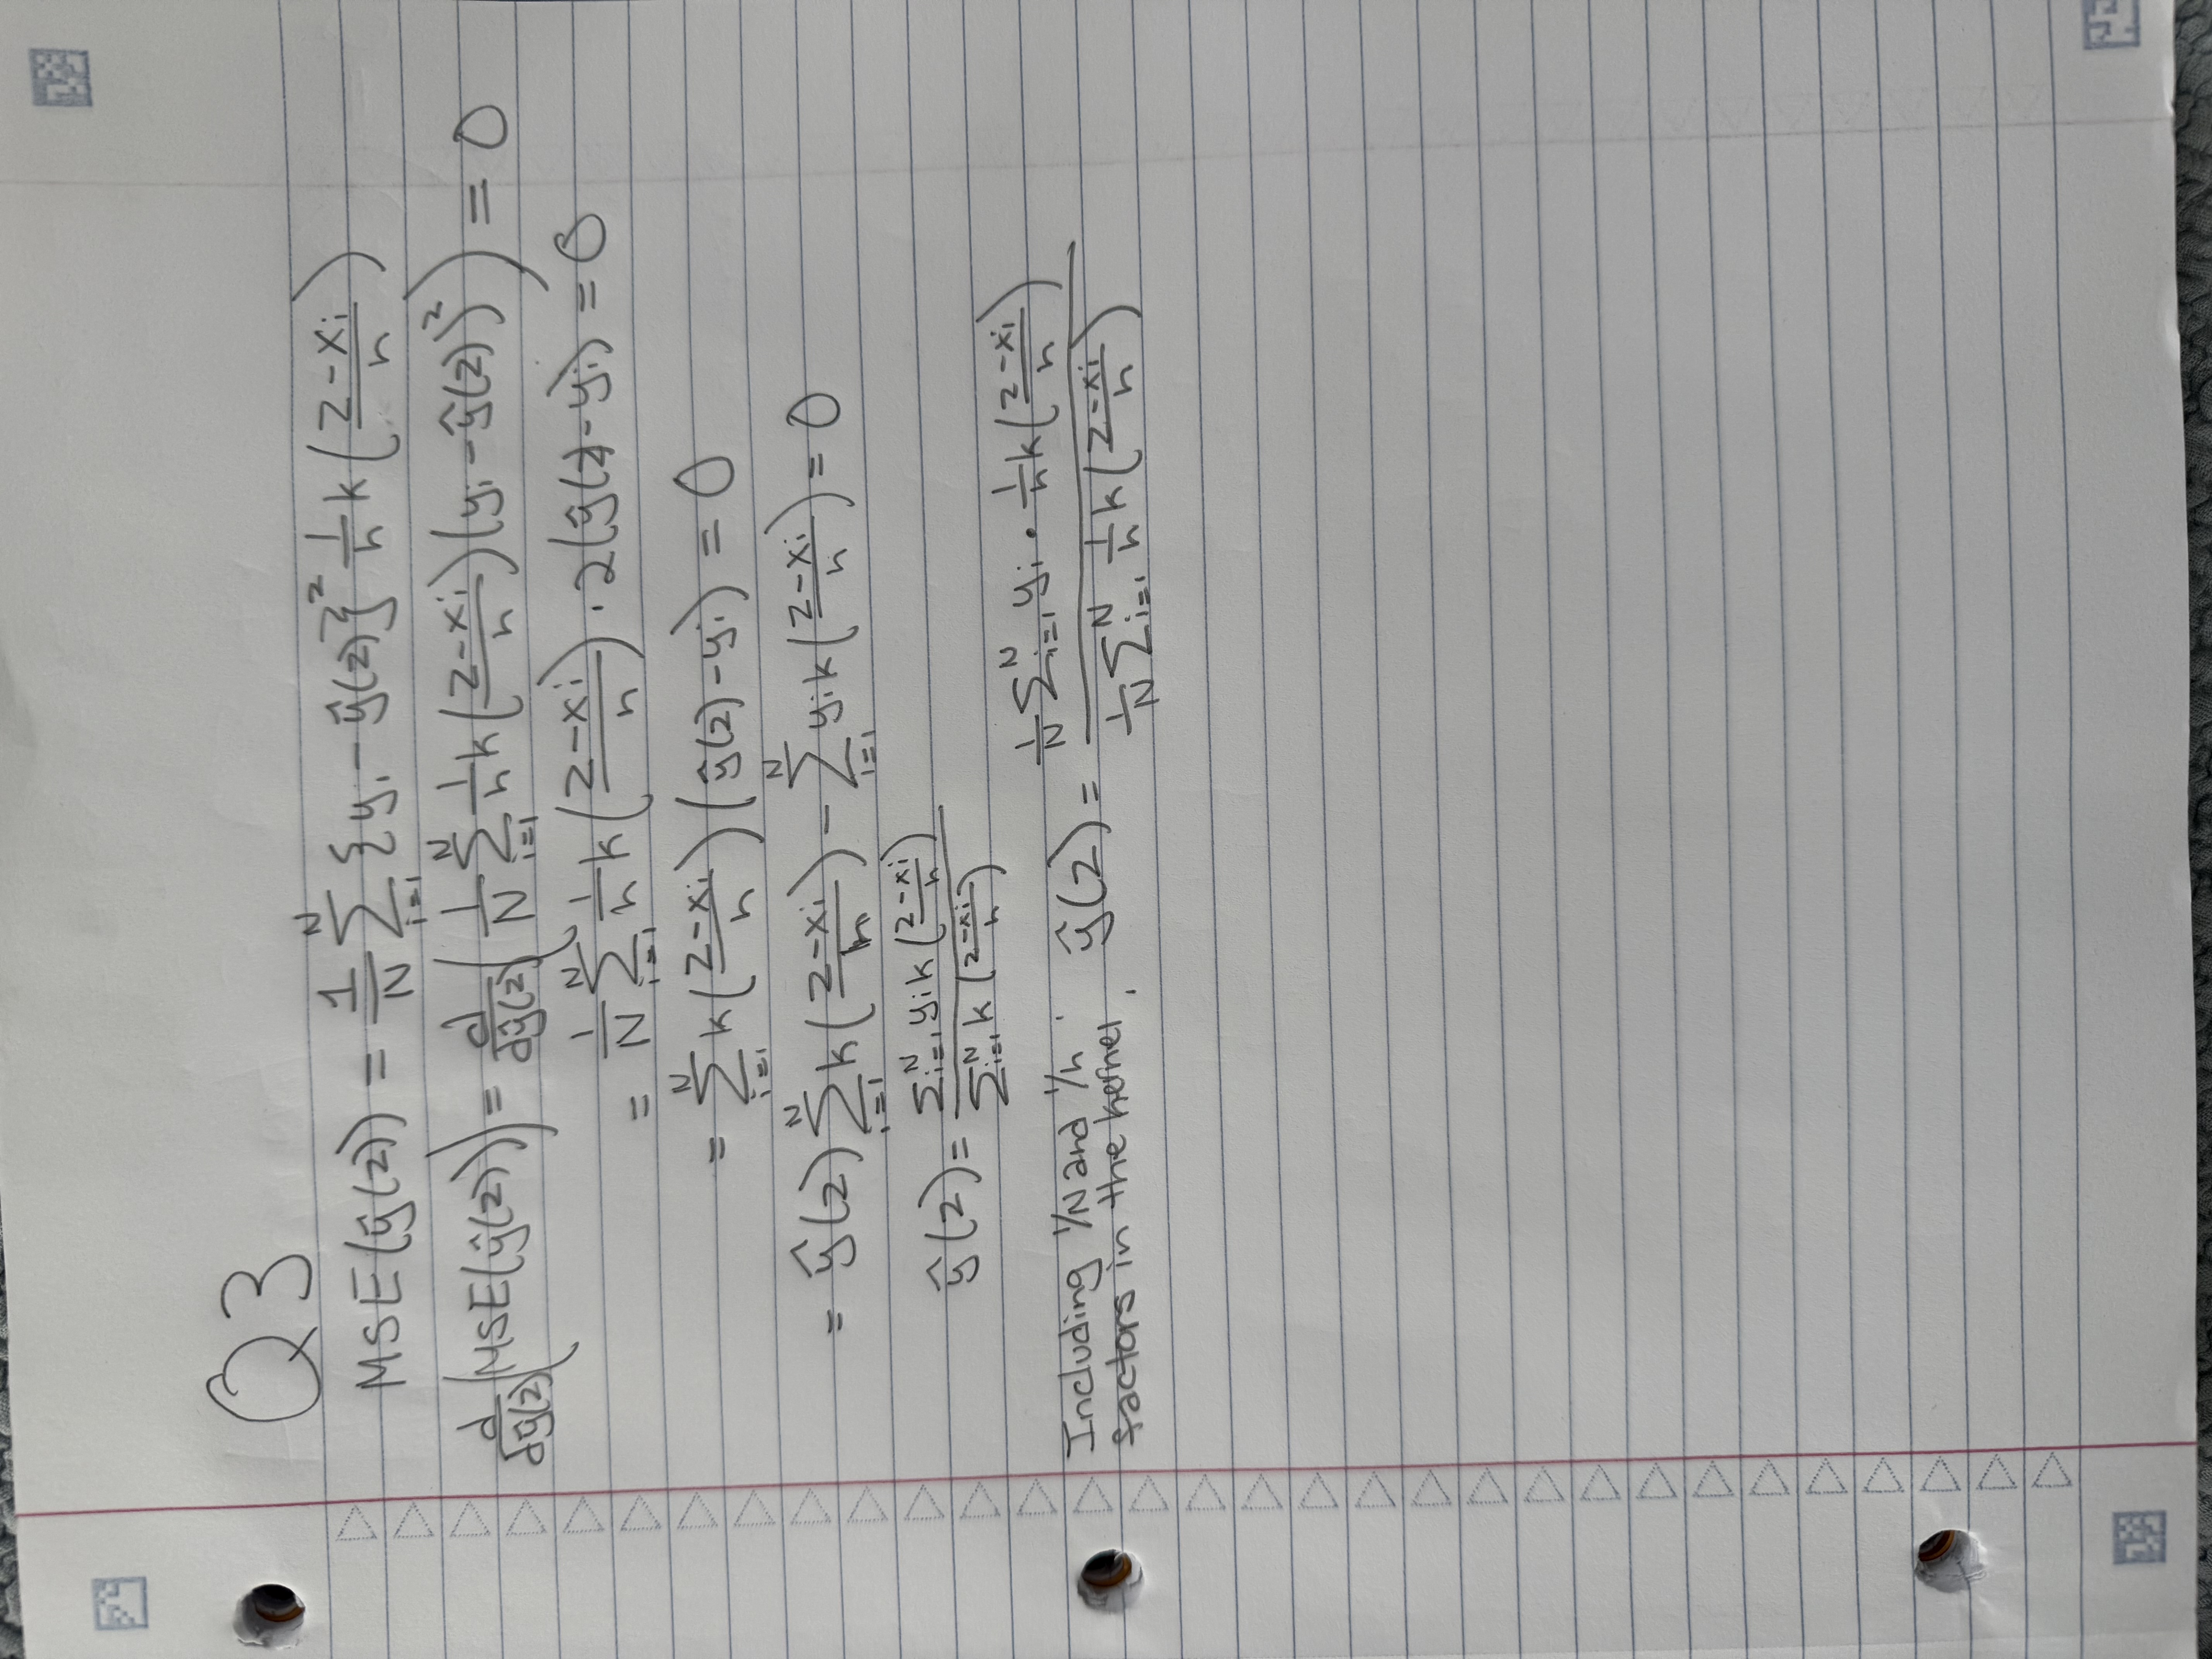 Q3
MSE(ŷ(z)) = 1/N Σ_{i=1}^{N} {y_i − ŷ(z)}² 1/h k((z−x_i)/h)
d/dŷ(z) (MSE(ŷ(z))) = d/dŷ(z) (1/N Σ_{i=1}^{N} 1/h k((z−x_i)/h) (y_i − ŷ(z))²) = 0
= 1/N Σ_{i=1}^{N} 1/h k((z−x_i)/h) · 2(ŷ(z) − y_i) = 0
= Σ_{i=1}^{N} k((z−x_i)/h) (ŷ(z) − y_i) = 0
= ŷ(z) Σ_{i=1}^{N} k((z−x_i)/h) − Σ_{i=1}^{N} y_i k((z−x_i)/h) = 0
ŷ(z) = (Σ_{i=1}^{N} y_i k((z−x_i)/h)) / (Σ_{i=1}^{N} k((z−x_i)/h))
Including 1/N and 1/h
factors in the kernel, ŷ(z) = (1/N Σ_{i=1}^{N} y_i · 1/h k((z−x_i)/h)) / (1/N Σ_{i=1}^{N} 1/h k((z−x_i)/h))